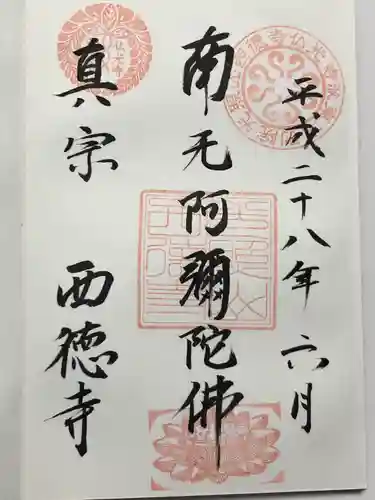 平成二十八年 六月
南无阿彌陀佛
真宗 西德寺